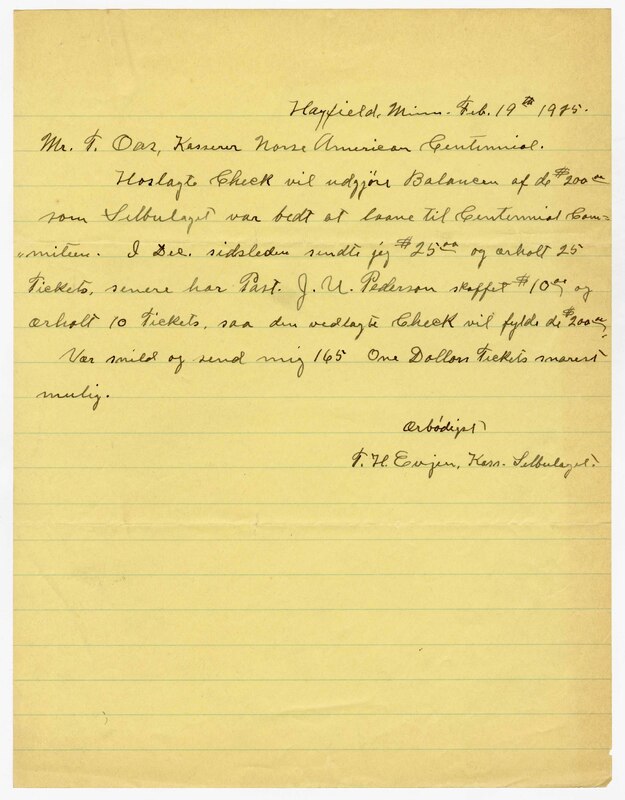 Hayfield, Minn. Feb. 19th 1925.
Mr. T. Oas, Kasserer Norse American Centennial.
Hoslagte Check vil udgjöre Balancen af de $200.00
som Selbulaget var bedt at laane til Centennial Com=
"miteen. I Dec. sidsleden sendte jeg $25.00 og erholt 25
Tickets, senere har Past. J. U. Pederson skaffet $10.00 og
erholt 10 Tickets, saa den vedlagte Check vil fylde de $200.00
Vær snild og send mig 165 One Dollars Tickets snarest
mulig.
Ærbödigst
T. H. Evjen, Kass. Selbulaget.